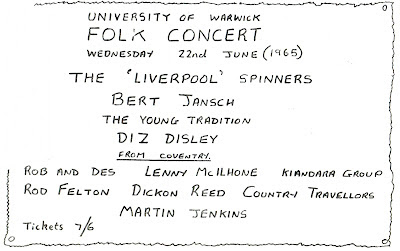 UNIVERSITY OF WARWICK
FOLK CONCERT
WEDNESDAY 22nd JUNE (1965)
THE 'LIVERPOOL' SPINNERS
BERT JANSCH
THE YOUNG TRADITION
DIZ DISLEY
FROM COVENTRY.
ROB AND DES LENNY MCILHONE KIANDARA GROUP
ROD FELTON DICKON REED COUNTRY TRAVELLORS
MARTIN JENKINS
Tickets 7/6